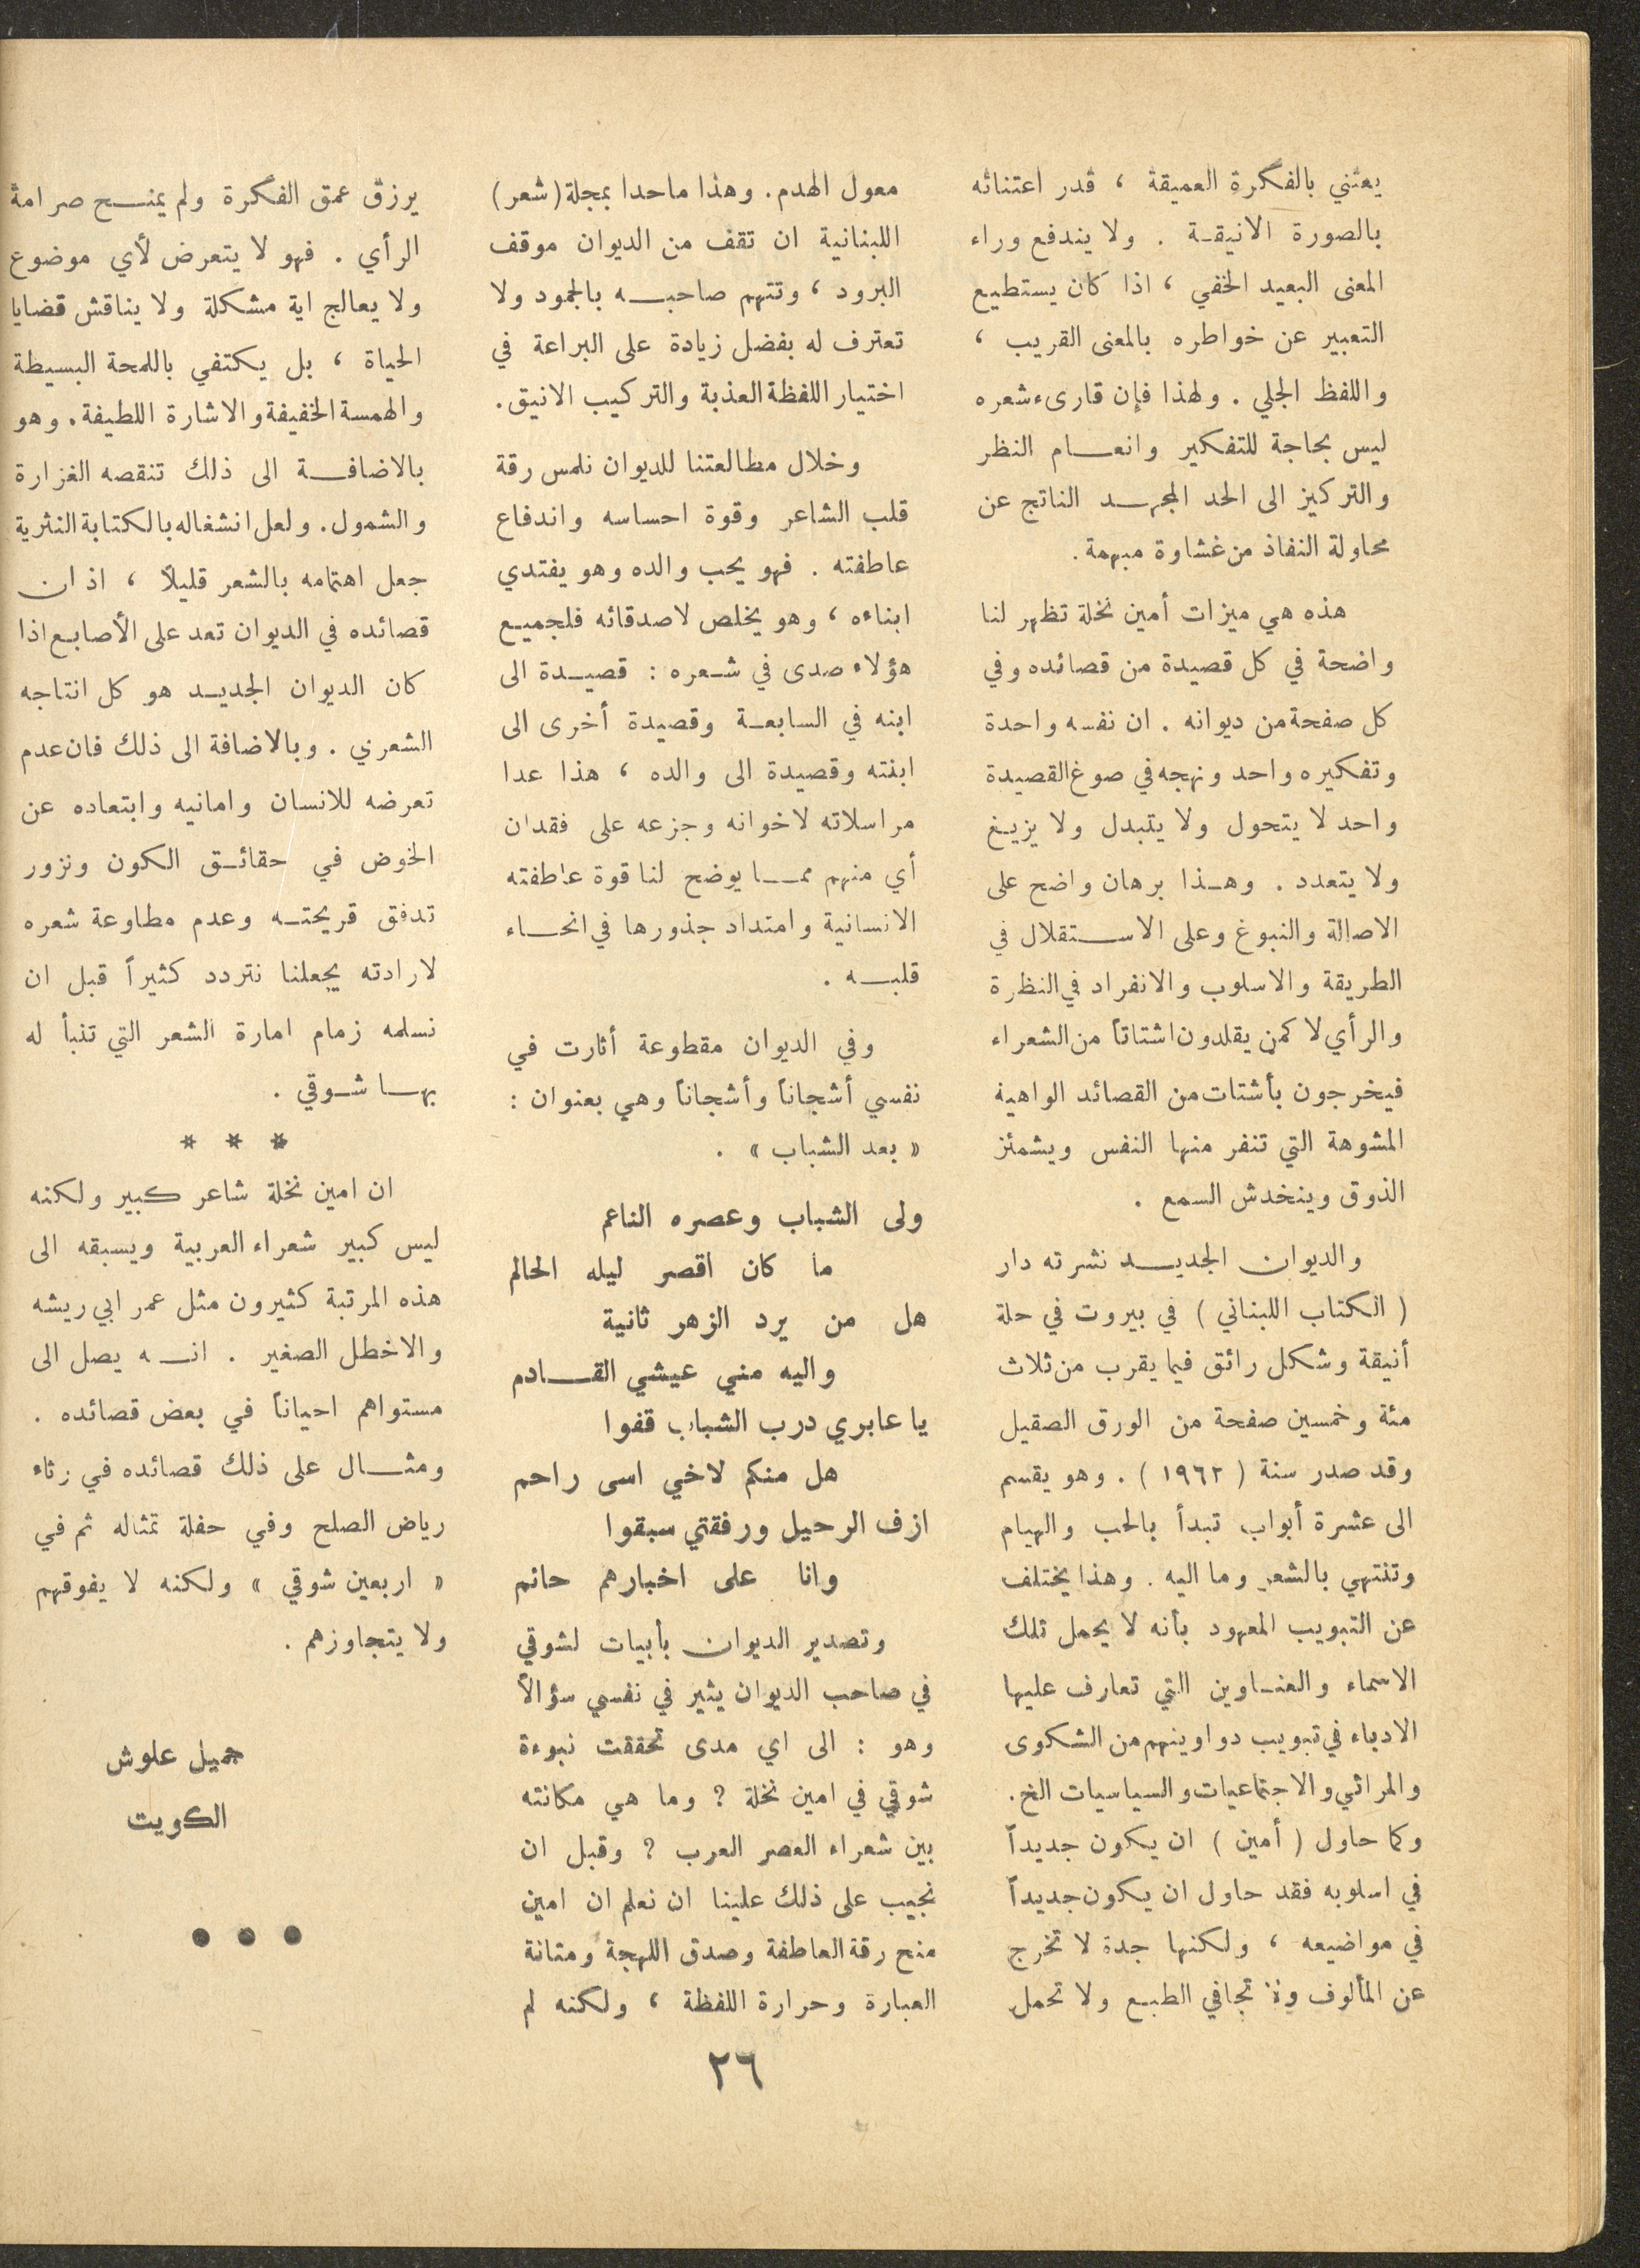 يعتني بالفكرة العميقة ، قدر اعتنائه
بالصورة الانيقة . ولا يندفع وراء
المعنى البعيد الخفي ، اذا كان يستطيع
التعبير عن خواطره بالمعنى القريب ،
واللفظ الجلي . ولهذا فإن قارىء شعره
ليس بحاجة للتفكير وانعام النظر
والتركيز الى الحد المجهد الناتج عن
محاولة النفاذ من غشاوة مبهمة .
هذه هي ميزات أمين نخلة تظهر لنا
واضحة في كل قصيدة من قصائده وفي
كل صفحة من ديوانه . ان نفسه واحدة
وتفكيره واحد ونهجه في صوغ القصيدة
واحد لا يتحول ولا يتبدل ولا يزيغ
ولا يتعدد . وهذا برهان واضح على
الاصالة والنبوغ وعلى الاستقلال في
الطريقة والاسلوب والانفراد في النظرة
والرأي لا كمن يقلدون اشتاتاً من الشعراء
فيخرجون بأشتات من القصائد الواهية
المشوهة التي تنفر منها النفس ويشمئز
الذوق وينخدش السمع .
والديوان الجديد نشرته دار
( الكتاب اللبناني ) في بيروت في حلة
أنيقة وشكل رائق فيما يقرب من ثلاث
مئة وخمسين صفحة من الورق الصقيل
وقد صدر سنة ( ١٩٦٢ ) . وهو يقسم
الى عشرة أبواب تبدأ بالحب والهيام
وتنتهي بالشعر وما اليه . وهذا يختلف
عن التبويب المعهود بأنه لا يحمل تلك
الاسماء والعناوين التي تعارف عليها
الادباء في تبويب دواوينهم من الشكوى
والمراثي والاجتماعيات والسياسيات الخ .
وكما حاول ( أمين ) ان يكون جديداً
في اسلوبه فقد حاول ان يكون جديداً
في مواضيعه ، ولكنها جدة لا تخرج
عن المألوف ولا تجافي الطبع ولا تحمل
معول الهدم . وهذا ما حدا بمجلة (شعر)
اللبنانية ان تقف من الديوان موقف
البرود ، وتتهم صاحبه بالجمود ولا
تعترف له بفضل زيادة على البراعة في
اختيار اللفظة العذبة والتركيب الانيق .
وخلال مطالعتنا للديوان نلمس رقة
قلب الشاعر وقوة احساسه واندفاع
عاطفته . فهو يحب والده وهو يفتدي
ابناءه ، وهو يخلص لاصدقائه فلجميع
هؤلاء صدى في شعره : قصيدة الى
ابنه في السابعة وقصيدة أخرى الى
ابنته وقصيدة الى والده ، هذا عدا
مراسلاته لاخوانه وجزعه على فقدان
أي منهم مما يوضح لنا قوة عاطفته
الانسانية وامتداد جذورها في انحاء
قلبه .
وفي الديوان مقطوعة أثارت في
نفسي أشجاناً وأشجاناً وهي بعنوان :
« بعد الشباب » .
ولى الشباب وعصره الناعم
ما كان اقصر ليله الحالم
هل من يرد الزهر ثانية
واليه مني عيشي القادم
يا عابري درب الشباب قفوا
هل منكم لاخي اسى راحم
ازف الرحيل ورفقتي سبقوا
وانا على اخبارهم حائم
وتصدير الديوان بأبيات لشوقي
في صاحب الديوان يثير في نفسي سؤالاً
وهو : الى اي مدى تحققت نبوءة
شوقي في امين نخلة ؟ وما هي مكانته
بين شعراء العصر العرب ؟ وقبل ان
نجيب على ذلك علينا ان نعلم ان امين
منح رقة العاطفة وصدق اللهجة ومتانة
العبارة وحرارة اللفظة ، ولكنه لم
يرزق عمق الفكرة ولم يمنح صرامة
الرأي . فهو لا يتعرض لأي موضوع
ولا يعالج اية مشكلة ولا يناقش قضايا
الحياة ، بل يكتفي باللمحة البسيطة
والهمسة الخفيفة والاشارة اللطيفة . وهو
بالاضافة الى ذلك تنقصه الغزارة
والشمول . ولعل انشغاله بالكتابة النثرية
جعل اهتمامه بالشعر قليلاً ، اذ ان
قصائده في الديوان تعد على الأصابع اذا
كان الديوان الجديد هو كل انتاجه
الشعري . وبالاضافة الى ذلك فان عدم
تعرضه للانسان وامانيه وابتعاده عن
الخوض في حقائق الكون ونزور
تدفق قريحته وعدم مطاوعة شعره
لارادته يجعلنا نتردد كثيراً قبل ان
نسلمه زمام امارة الشعر التي تنبأ له
بها شوقي .
* * *
ان امين نخلة شاعر كبير ولكنه
ليس كبير شعراء العربية ويسبقه الى
هذه المرتبة كثيرون مثل عمر ابي ريشه
والاخطل الصغير . انه يصل الى
مستواهم احياناً في بعض قصائده .
ومثال على ذلك قصائده في رثاء
رياض الصلح وفي حفلة تمثاله ثم في
« اربعين شوقي » ولكنه لا يفوقهم
ولا يتجاوزهم .
جميل علوش
الكويت
٢٦